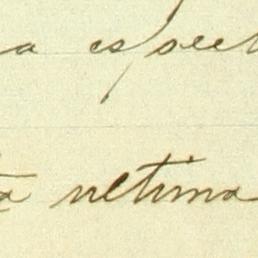 a espect
ta ultima